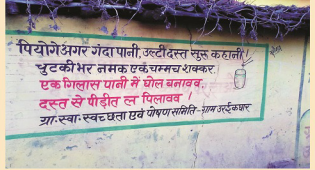 पियोगे अगर गंदा पानी, उल्टी दस्त सुरू कहानी।
चुटकी भर नमक एक चम्मच शक्कर.
एक गिलास पानी में घोल बनावव.
दस्त से पीड़ीत ल पिलावव ।
ग्रा. स्वा. स्वच्छता एवं पोषण समिति - ग्राम